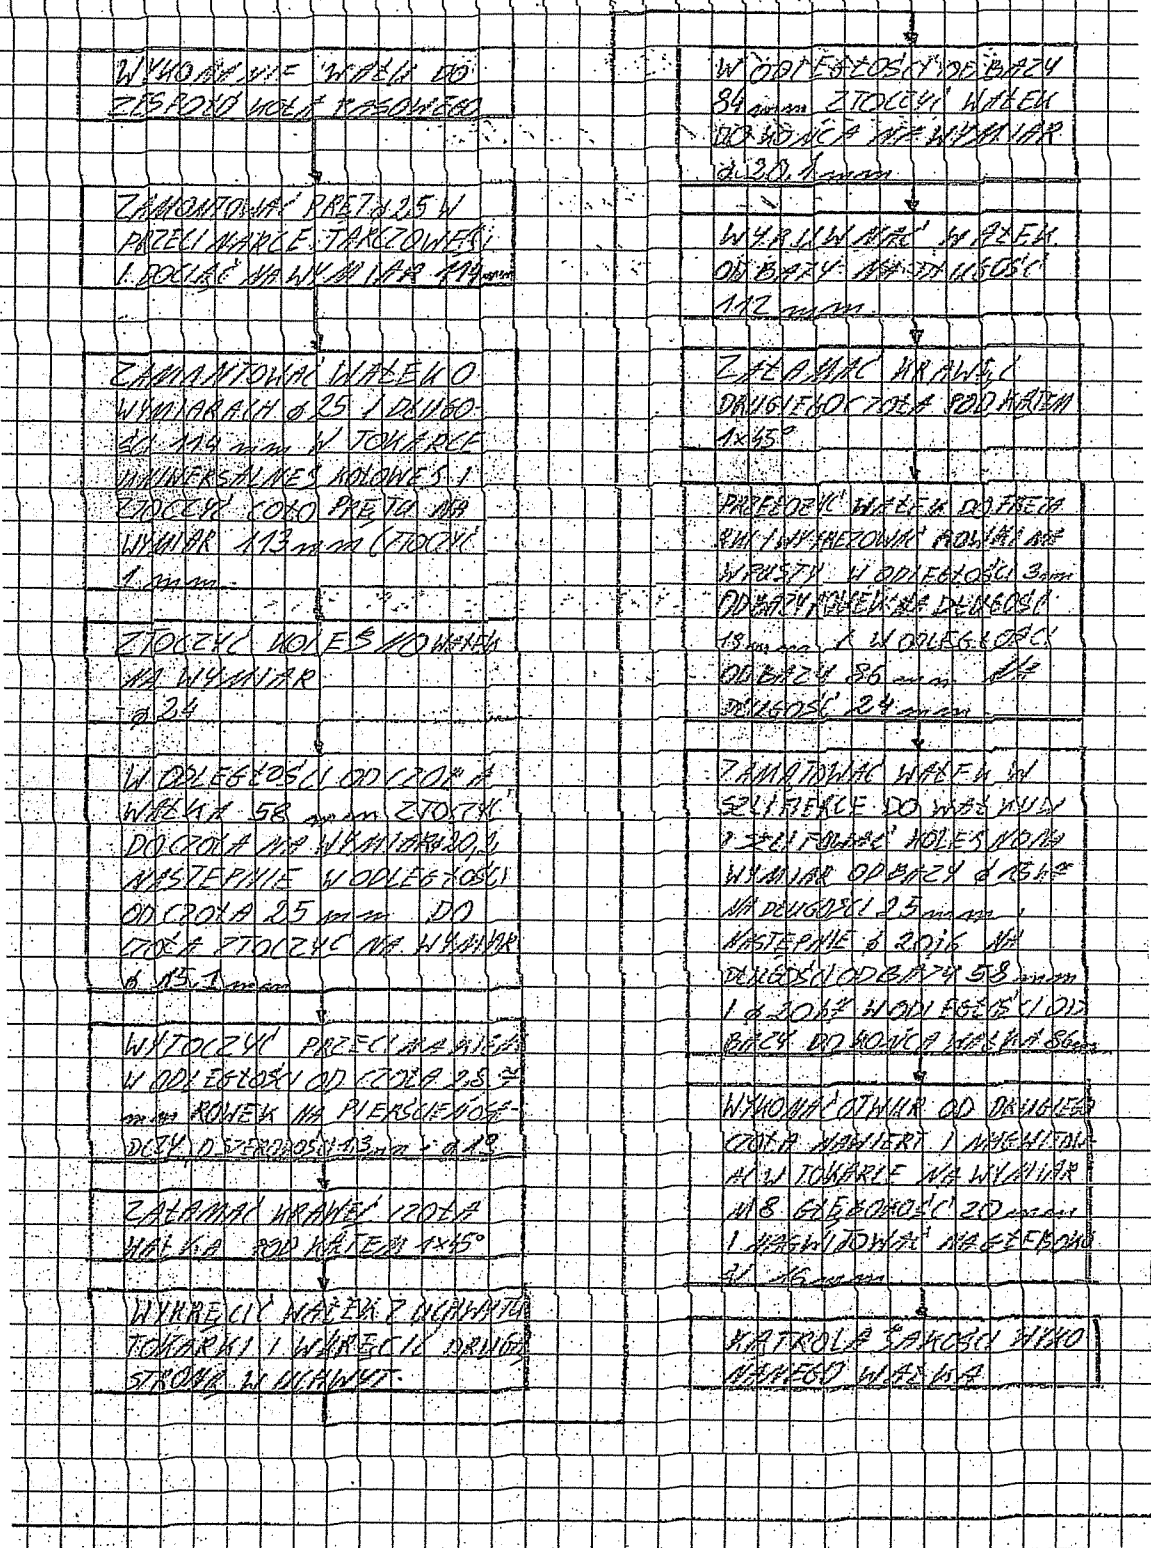 WYKONANIE WAŁU DO
ZESPOŁU KOŁA PASOWEGO
ZAMONTOWAĆ PRĘT ø 25 W
PRZECINARCE TARCZOWEJ
I DOCIĄĆ NA WYMIAR 114 mm
ZAMANTOWAĆ WAŁEK O
WYMIARACH ø 25 I DŁUGO-
ŚCI 114 mm W TOKARCE
UNIWERSALNEJ KOŁOWEJ I
ZTOCZYĆ COŁO PRĘTU NA
WYMIAR 113 mm (ZTOCZYĆ
1 mm
ZTOCZYĆ KOLEJNO WAŁEK
NA WYMIAR
ø 24
W ODLEGŁOŚCI OD CZOŁA
WAŁKA 58 mm ZTOCZYĆ
DO CZOŁA NA WYMIAR ø 20,2
NASTEPNIE W ODLEGŁOŚCI
OD CZOŁA 25 mm DO
CZOŁA ZTOCZYĆ NA WYMIAR
ø 15,1 mm
WYTOCZYĆ PRZECINAKIEM
W ODLEGŁOŚCI OD CZOŁA
mm ROWEK NA PIERŚCIEŃ OSA-
DCZY O SZEROKOŚCI 1,3 mm
ZAŁAMAĆ KRAWĘĆ CZOŁA
WAŁKA POD KĄTEM 1x45°
WYKRĘCIĆ WAŁEK Z UCHWYTU
TOKARKI I WKRĘCIĆ DRUGĄ
STRONĄ W UCHWYT.
W ODLEGŁOŚCI OD BAZY
84 mm ZTOCZYĆ WAŁEK
DO KOŃCA NA WYMIAR
ø 20,1 mm
WYRUWNAĆ WAŁEK
OD BAZY NA DŁUGOŚĆ
112 mm.
ZAŁAMAĆ KRAWĘĆ
DRUGIEGO CZOŁA POD KĄTEM
1x45°
PRZEŁOZYĆ WAŁEK DO FREZA
RKI I WYFREZOWAĆ ROWKI NA
WPUSTY W ODLEGŁOŚCI 3mm
OD BAZY ROWEK NA DŁUGOŚĆ
18 mm I W ODLEGŁOŚCI
OD BAZY 86 mm NA
DŁUGOŚĆ 24 mm
ZAMĄTOWAĆ WAŁEK W
SZLIFIERCE DO WAŁKUW
I SZLIFOWAĆ KOLEJNO NA
WYMIAR OD BAZY ø 15 h7
NA DŁUGOŚCI 25 mm,
NASTEPNIE ø 20j6 NA
DŁUGOŚCI OD BAZY 58 mm
I ø 20 h7 W ODLEGŁOŚCI OD
BAZY DO KOŃCA WAŁKA 86m
WYKONAĆ OTWUR OD DRUGIEGO
CZOŁA NAWIERT. I NAGWITOW-
AĆ W TOKARCE NA WYMIAR
M8 GŁĘBOKOŚĆ 20 mm
I NAGWITOWAĆ NA GŁEBOKO
ŚĆ 16 mm
KATROLA JAKOŚCI WYKO
NANEGO WAŁKA